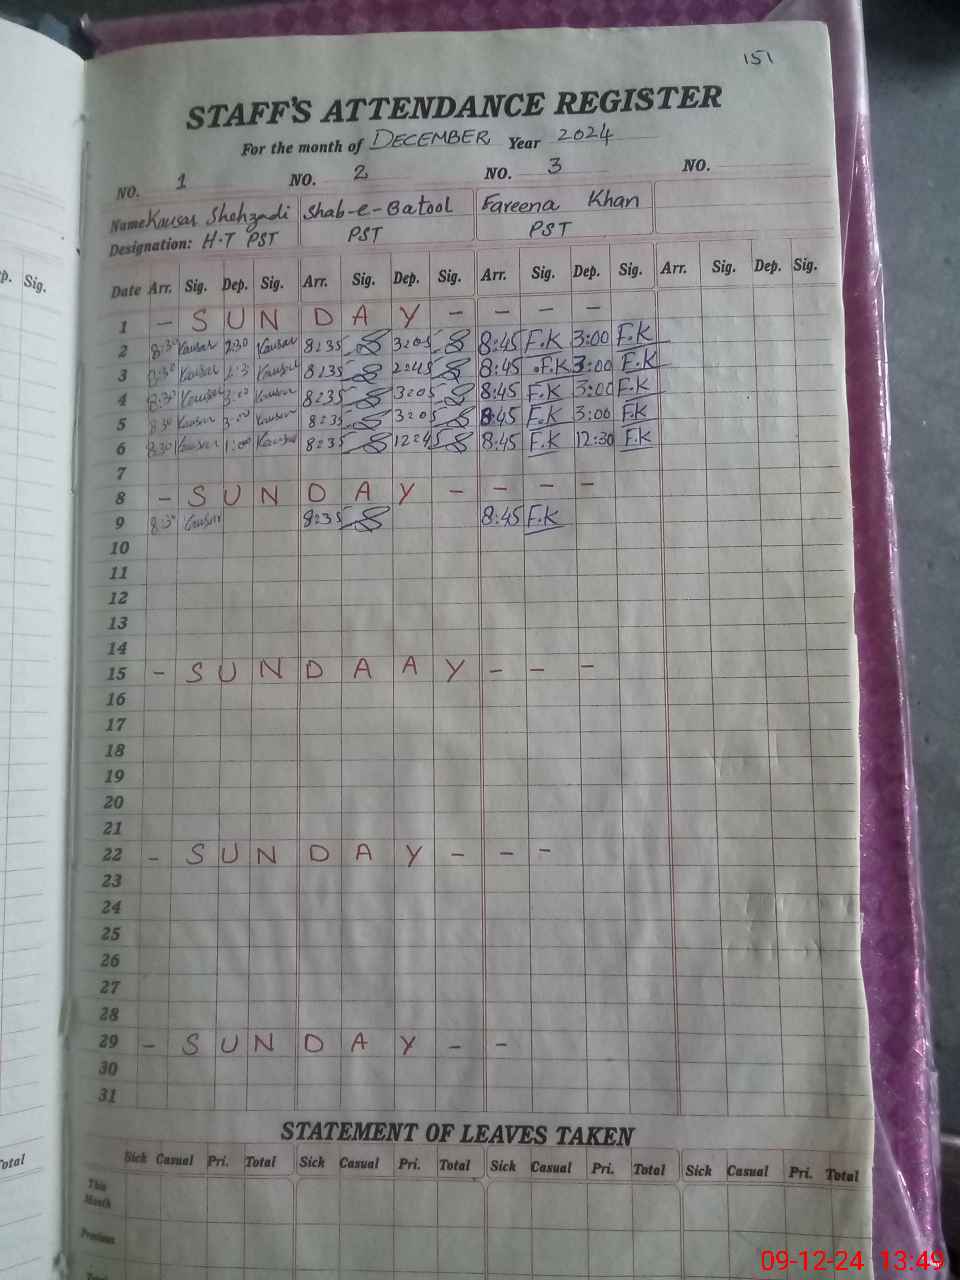 151
STAFF'S ATTENDANCE REGISTER
For the month of DECEMBER Year 2024
NO. 1 NO. 2 NO. 3 NO.
Name Kausar Shehzadi Shab-e-Batool Fareena Khan
Designation: H.T PST PST PST
Date Arr. Sig. Dep. Sig. Arr. Sig. Dep. Sig. Arr. Sig. Dep. Sig. Arr. Sig. Dep. Sig.
ep. Sig.
1 - S U N D A Y - - - -
2 8:30 Kausar 2:30 Kausar 8:35 3:05 8:45 F.K 3:00 F.K
3 8:30 Kausar Kausar 8:35 2:45 8:45 F.K 3:00 F.K
4 8:30 Kausar 3:00 Kausar 8:35 3:05 8:45 F.K 3:00 F.K
5 8:30 Kausar 3:00 Kausar 8:35 3:05 8:45 F.K 3:00 F.K
6 8:30 Kausar 1:00 Kausar 8:35 12:45 8:45 F.K 12:30 F.K
7
8 - S U N D A Y - - - -
9 8:30 Kausar 8:35 8:45 F.K
10
11
12
13
14
15 - S U N D A A Y - - -
16
17
18
19
20
21
22 - S U N D A Y - - -
23
24
25
26
27
28
29 - S U N D A Y - -
30
31
STATEMENT OF LEAVES TAKEN
Sick Casual Pri. Total Sick Casual Pri. Total Sick Casual Pri. Total Sick Casual Pri. Total
Total
This
Month
Previous
Total
09-12-24 13:49